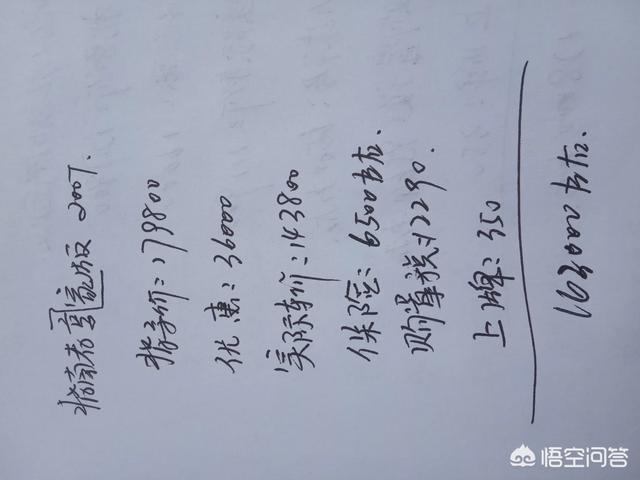 指南者 家版 200T.
指导价:179800
优惠:36000
实际车价:143800
保险:6500左右.
购车税:12290.
上牌:350
163000左右.
悟空问答